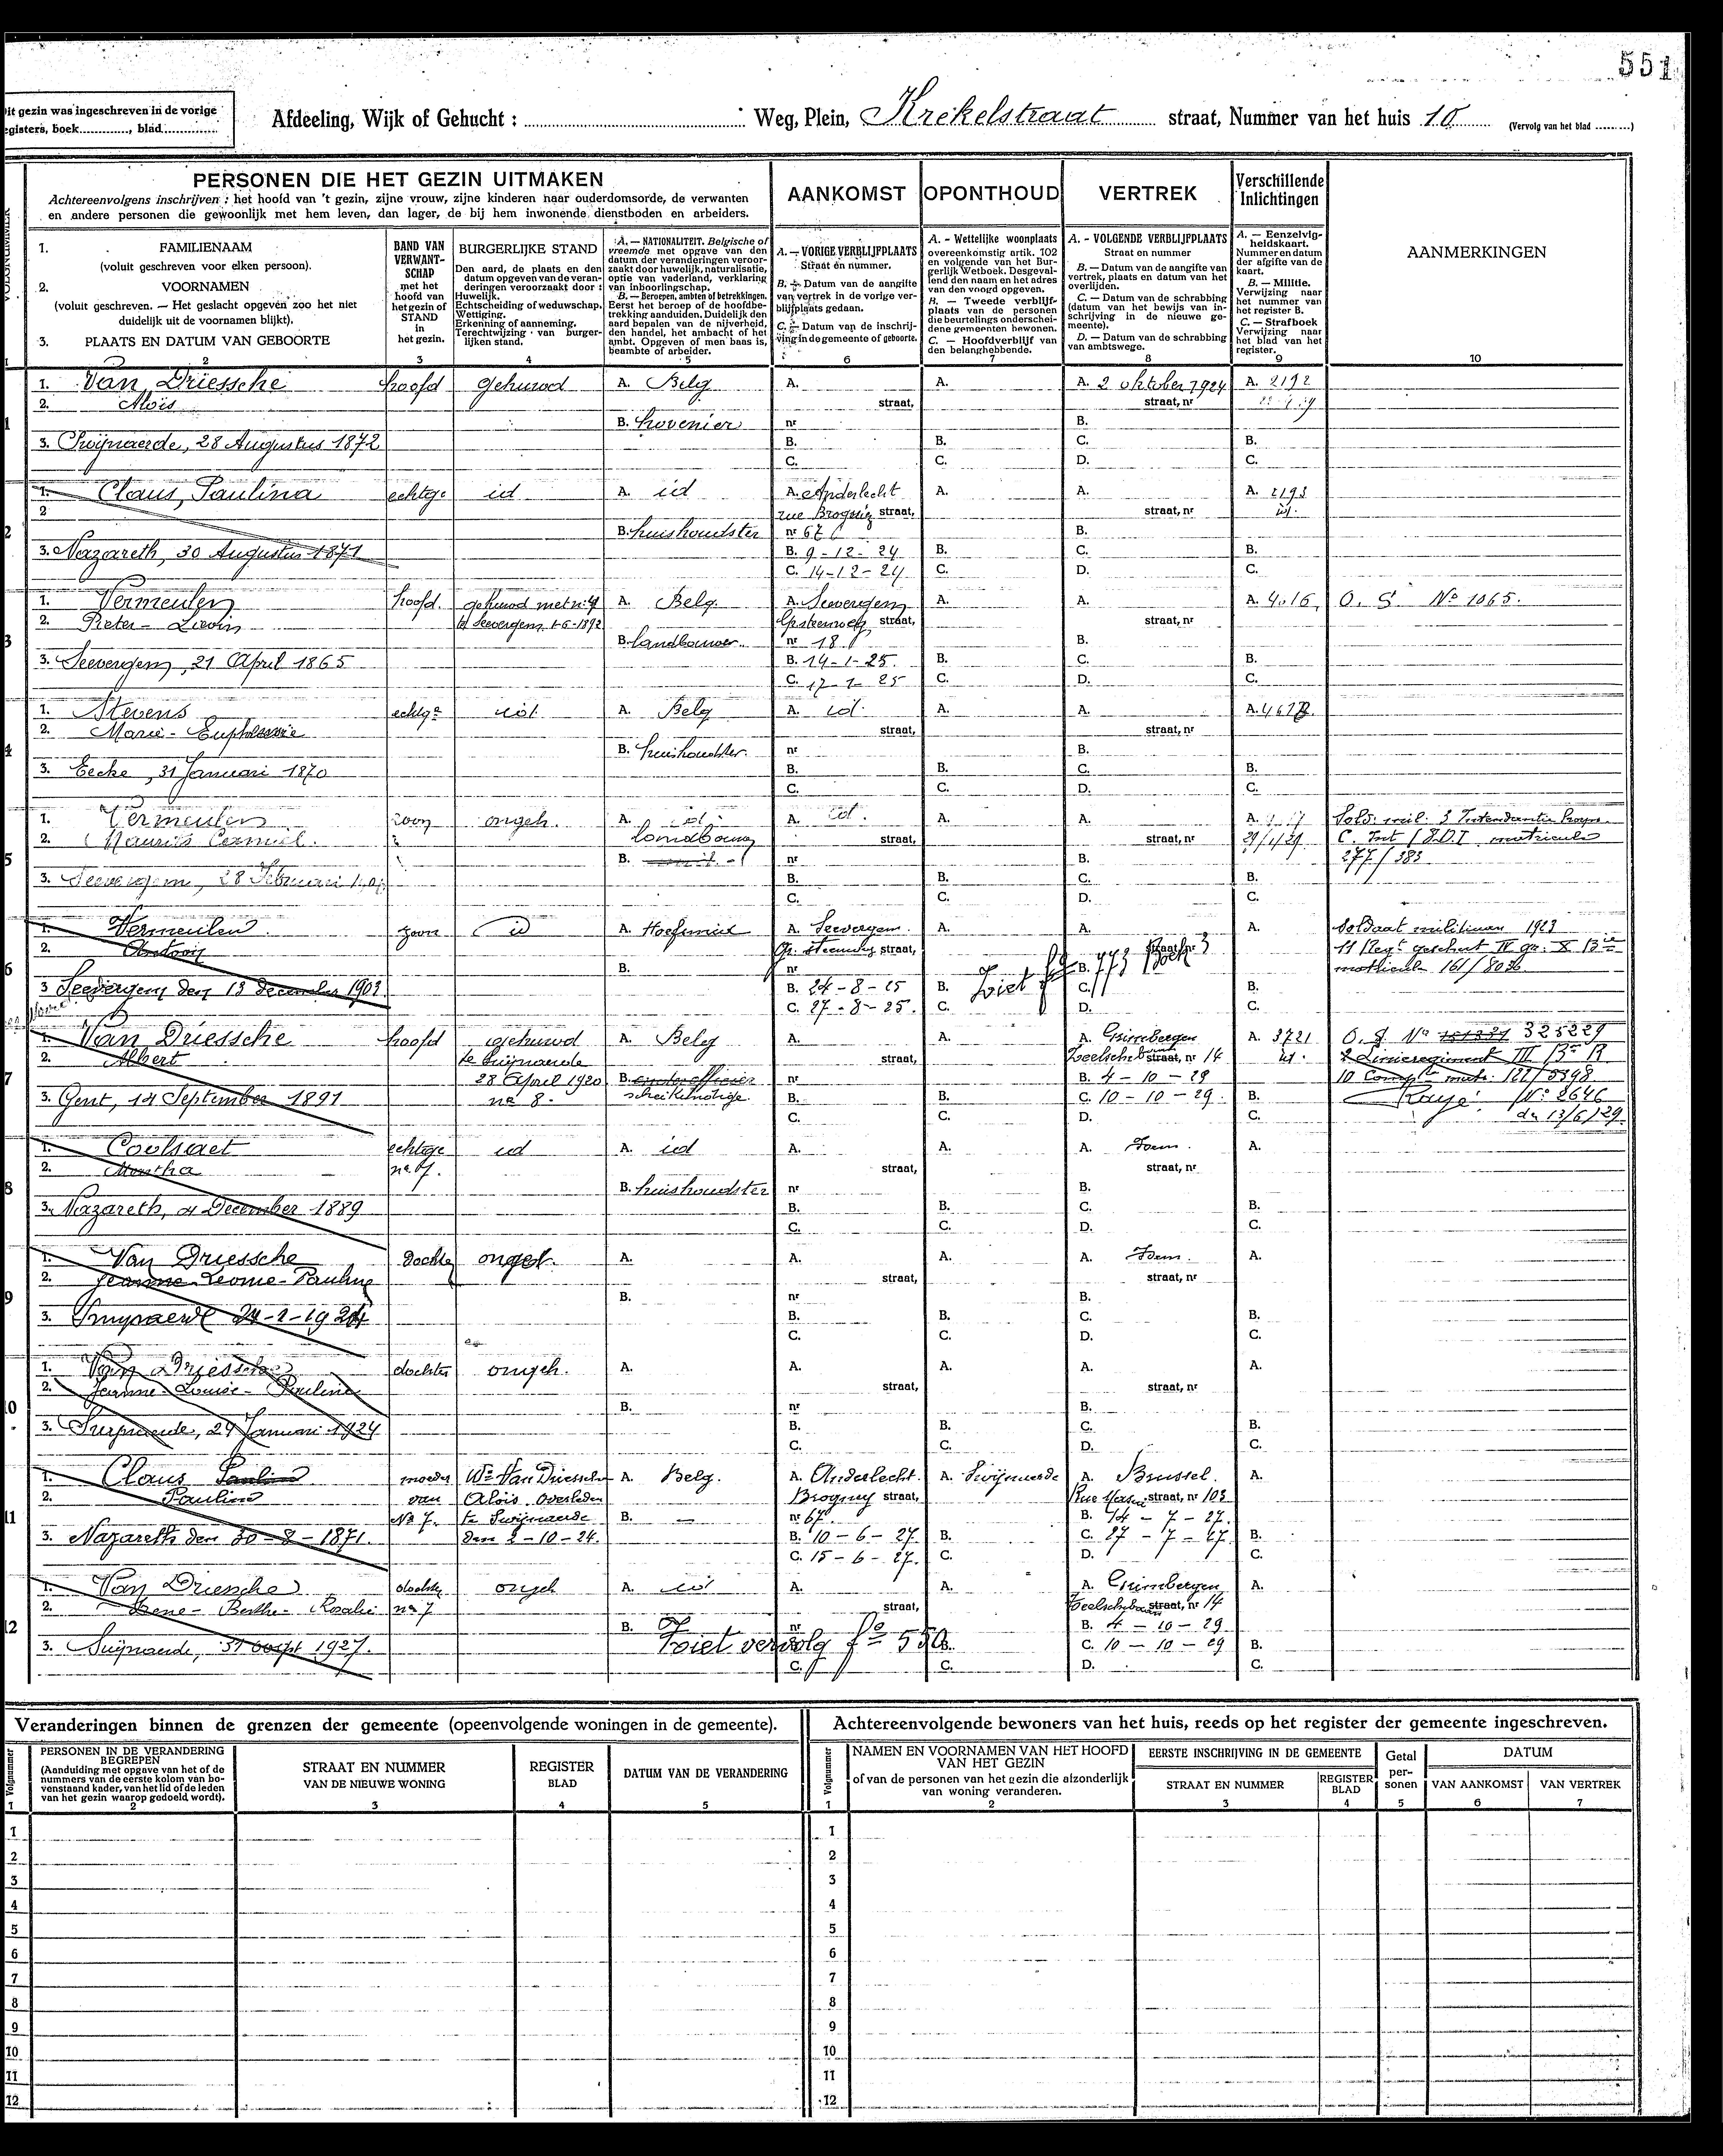 551
Dit gezin was ingeschreven in de vorige
registers, boek ............, blad ..............
Afdeeling, Wijk of Gehucht : ........ Weg, Plein, Krekelstraat straat, Nummer van het huis 10 (Vervolg van het blad .........)
PERSONEN DIE HET GEZIN UITMAKEN
Achtereenvolgens inschrijven : het hoofd van 't gezin, zijne vrouw, zijne kinderen naar ouderdomsorde, de verwanten
en andere personen die gewoonlijk met hem leven, dan lager, de bij hem inwonende dienstboden en arbeiders.
AANKOMST
OPONTHOUD
VERTREK
Verschillende
Inlichtingen
1. FAMILIENAAM
(voluit geschreven voor elken persoon).
2. VOORNAMEN
(voluit geschreven. — Het geslacht opgeven zoo het niet
duidelijk uit de voornamen blijkt).
3. PLAATS EN DATUM VAN GEBOORTE
2
BAND VAN
VERWANT-
SCHAP
met het
hoofd van
het gezin of
STAND
in
het gezin.
3
BURGERLIJKE STAND
Den aard, de plaats en den
datum opgeven van de veran-
deringen veroorzaakt door :
Huwelijk.
Echtscheiding of weduwschap.
Wettiging.
Erkenning of aanneming.
Terechtwijzing van burger-
lijken stand.
4
A. — NATIONALITEIT. Belgische of
vreemde met opgave van den
datum der veranderingen veroor-
zaakt door huwelijk, naturalisatie,
optie van vaderland, verklaring
van inboorlingschap.
B. — Beroepen, ambten of betrekkingen.
Eerst het beroep of de hoofdbe-
trekking aanduiden. Duidelijk den
aard bepalen van de nijverheid,
den handel, het ambacht of het
ambt. Opgeven of men baas is,
beambte of arbeider.
5
A. — VORIGE VERBLIJFPLAATS
Straat en nummer.
B. — Datum van de aangifte
van vertrek in de vorige ver-
blijfplaats gedaan.
C. — Datum van de inschrij-
ving in de gemeente of geboorte.
6
A. - Wettelijke woonplaats
overeenkomstig artik. 102
en volgende van het Bur-
gerlijk Wetboek. Desgeval-
lend den naam en het adres
van den voogd opgeven.
B. — Tweede verblijf-
plaats van de personen
die beurtelings onderschei-
dene gemeenten bewonen.
C. — Hoofdverblijf van
den belanghebbende.
7
A. - VOLGENDE VERBLIJFPLAATS
Straat en nummer
B. — Datum van de aangifte van
vertrek, plaats en datum van het
overlijden.
C. — Datum van de schrabbing
(datum van het bewijs van in-
schrijving in de nieuwe ge-
meente).
D. — Datum van de schrabbing
van ambtswege.
8
A. — Eenzelvig-
heidskaart.
Nummer en datum
der afgifte van de
kaart.
B. — Militie.
Verwijzing naar
het nummer van
het register B.
C. — Strafboek
Verwijzing naar
het blad van het
register.
9
AANMERKINGEN
10
1. Van Driessche hoofd gehuwd A. Belg A. A. A. 2 oktober 1924 A. 2192
2. Aloïs straat, straat, nr
B. hovenier nr B.
3. Zwijnaerde, 28 Augustus 1872 B. B. C. B.
C. C. D. C.
1. Claus, Paulina echtge id A. id A. Anderlecht A. A. A. 2193
2 rue Brogniz straat, straat, nr id.
B. huishoudster nr 67 B.
3. Nazareth, 30 Augustus 1871 B. 9-12-24 B. C. B.
C. 14-12-24 C. D. C.
1. Vermeulen hoofd. gehuwd met n: 4 A. Belg. A. Seevergem A. A. A. 4016 O. S. No 1065.
2. Pieter-Lievin te Seevergem 1-6-1892 straat, straat, nr
B. landbouwer nr 18 B.
3. Seevergem, 21 April 1865 B. 14-1-25 B. C. B.
C. 17-1-25 C. D. C.
1. Stevens echtge id. A. Belg A. id. A. A. A. 4017
2. Marie-Euphrasie straat, straat, nr
B. huishoudster nr B.
3. Eecke, 31 Januari 1870 B. B. C. B.
C. C. D. C.
1. Vermeulen zoon ongeh. A. id. A. id. A. A. A.
2. Maurits Camiel. landbouwer straat, straat, nr C. Int matricule
B. nr B. 277/383
3. Seevergem, 28 Februari B. B. C. B.
C. C. D. C.
1. Vermeulen zoon id A. Hoefsmid A. Seevergem A. A. A. Soldaat milicien 1923
2. Antoon straat, straat, nr
B. nr Ziet fo 773 Boek 3 matricule 161/8036
3 Seevergem den 13 december 1903. B. 24-8-25 B. C. B.
C. 27-8-25. C. D. C.
1. Van Driessche hoofd gehuwd A. Belg A. A. A. Grimbergen A. 3721 O. S. No 325229
2. Albert te Swijnaerde straat, straat, nr 14 id. 2 Linieregiment III
28 April 1920 B. onderofficier nr B. 4-10-29 10 Comp matr. 122/5398
3. Gent, 14 September 1891 no 8. scheikundige B. B. C. 10-10-29. B. Rayé No 2646
C. C. D. C. du 13/6/29.
1. Coolsaet echtge id A. id A. A. A. Idem. A.
2. Martha no 7. straat, straat, nr
B. huishoudster nr B.
3. Nazareth, 4 December 1889 B. B. C. B.
C. C. D. C.
1. Van Driessche Dochter ongeh. A. A. A. A. Idem. A.
2. Jeanne-Leonie-Pauline straat, straat, nr
B. nr B.
3. 24-1-1924 B. B. C. B.
C. C. D. C.
1. Van Driessche dochter ongeh. A. A. A. A. A.
2. Jeanne-Louise-Pauline straat, straat, nr
B. nr B.
3. Swijnaerde, 24 Januari 1924 B. B. C. B.
C. C. D. C.
1. Claus Paulina moeder We Van Driessche A. Belg. A. Anderlecht. A. Swijnaerde A. Brussel. A.
2. Paulina van Aloïs overleden Brogniy straat, Rue straat, nr 103
No 7. te Swijnaerde B. — nr 67 B. 14-7-27.
3. Nazareth den 30-8-1871. den 2-10-24. B. 10-6-27. B. C. 27-7-27. B.
C. 15-6-27. C. D. C.
1. Van Driessche dochter ongeh A. id A. A. A. Grimbergen A.
2. Irene-Berthe-Rosalie no 7 straat, straat, nr 14
B. nr B. 4-10-29
3. Swijnaerde, 31 1927. Ziet vervolg fo 550 B. C. 10-10-29 B.
C. C. D. C.
Veranderingen binnen de grenzen der gemeente (opeenvolgende woningen in de gemeente).
Achtereenvolgende bewoners van het huis, reeds op het register der gemeente ingeschreven.
Volgnummer
1
PERSONEN IN DE VERANDERING
BEGREPEN
(Aanduiding met opgave van het of de
nummers van de eerste kolom van bo-
venstaand kader, van het lid of de leden
van het gezin waarop gedoeld wordt).
2
STRAAT EN NUMMER
VAN DE NIEUWE WONING
3
REGISTER
BLAD
4
DATUM VAN DE VERANDERING
5
Volgnummer
1
NAMEN EN VOORNAMEN VAN HET HOOFD
VAN HET GEZIN
of van de personen van het gezin die afzonderlijk
van woning veranderen.
2
EERSTE INSCHRIJVING IN DE GEMEENTE
STRAAT EN NUMMER
3
REGISTER
BLAD
4
Getal
per-
sonen
5
DATUM
VAN AANKOMST
6
VAN VERTREK
7
1 1
2 2
3 3
4 4
5 5
6 6
7 7
8 8
9 9
10 10
11 11
12 12